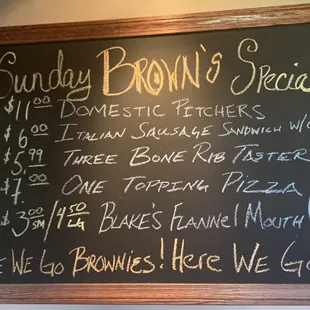 Sunday BROWN'S Specia
$11.00 DOMESTIC PITCHERS
$6.00 ITALIAN SAUSAGE SANDWICH W/
$5.99 THREE BONE RIB TASTER
$7.00 ONE TOPPING PIZZA
$3.00 SM / 4.50 LG BLAKE'S FLANNEL MOUTH
E WE GO BROWNIES! HERE WE GO